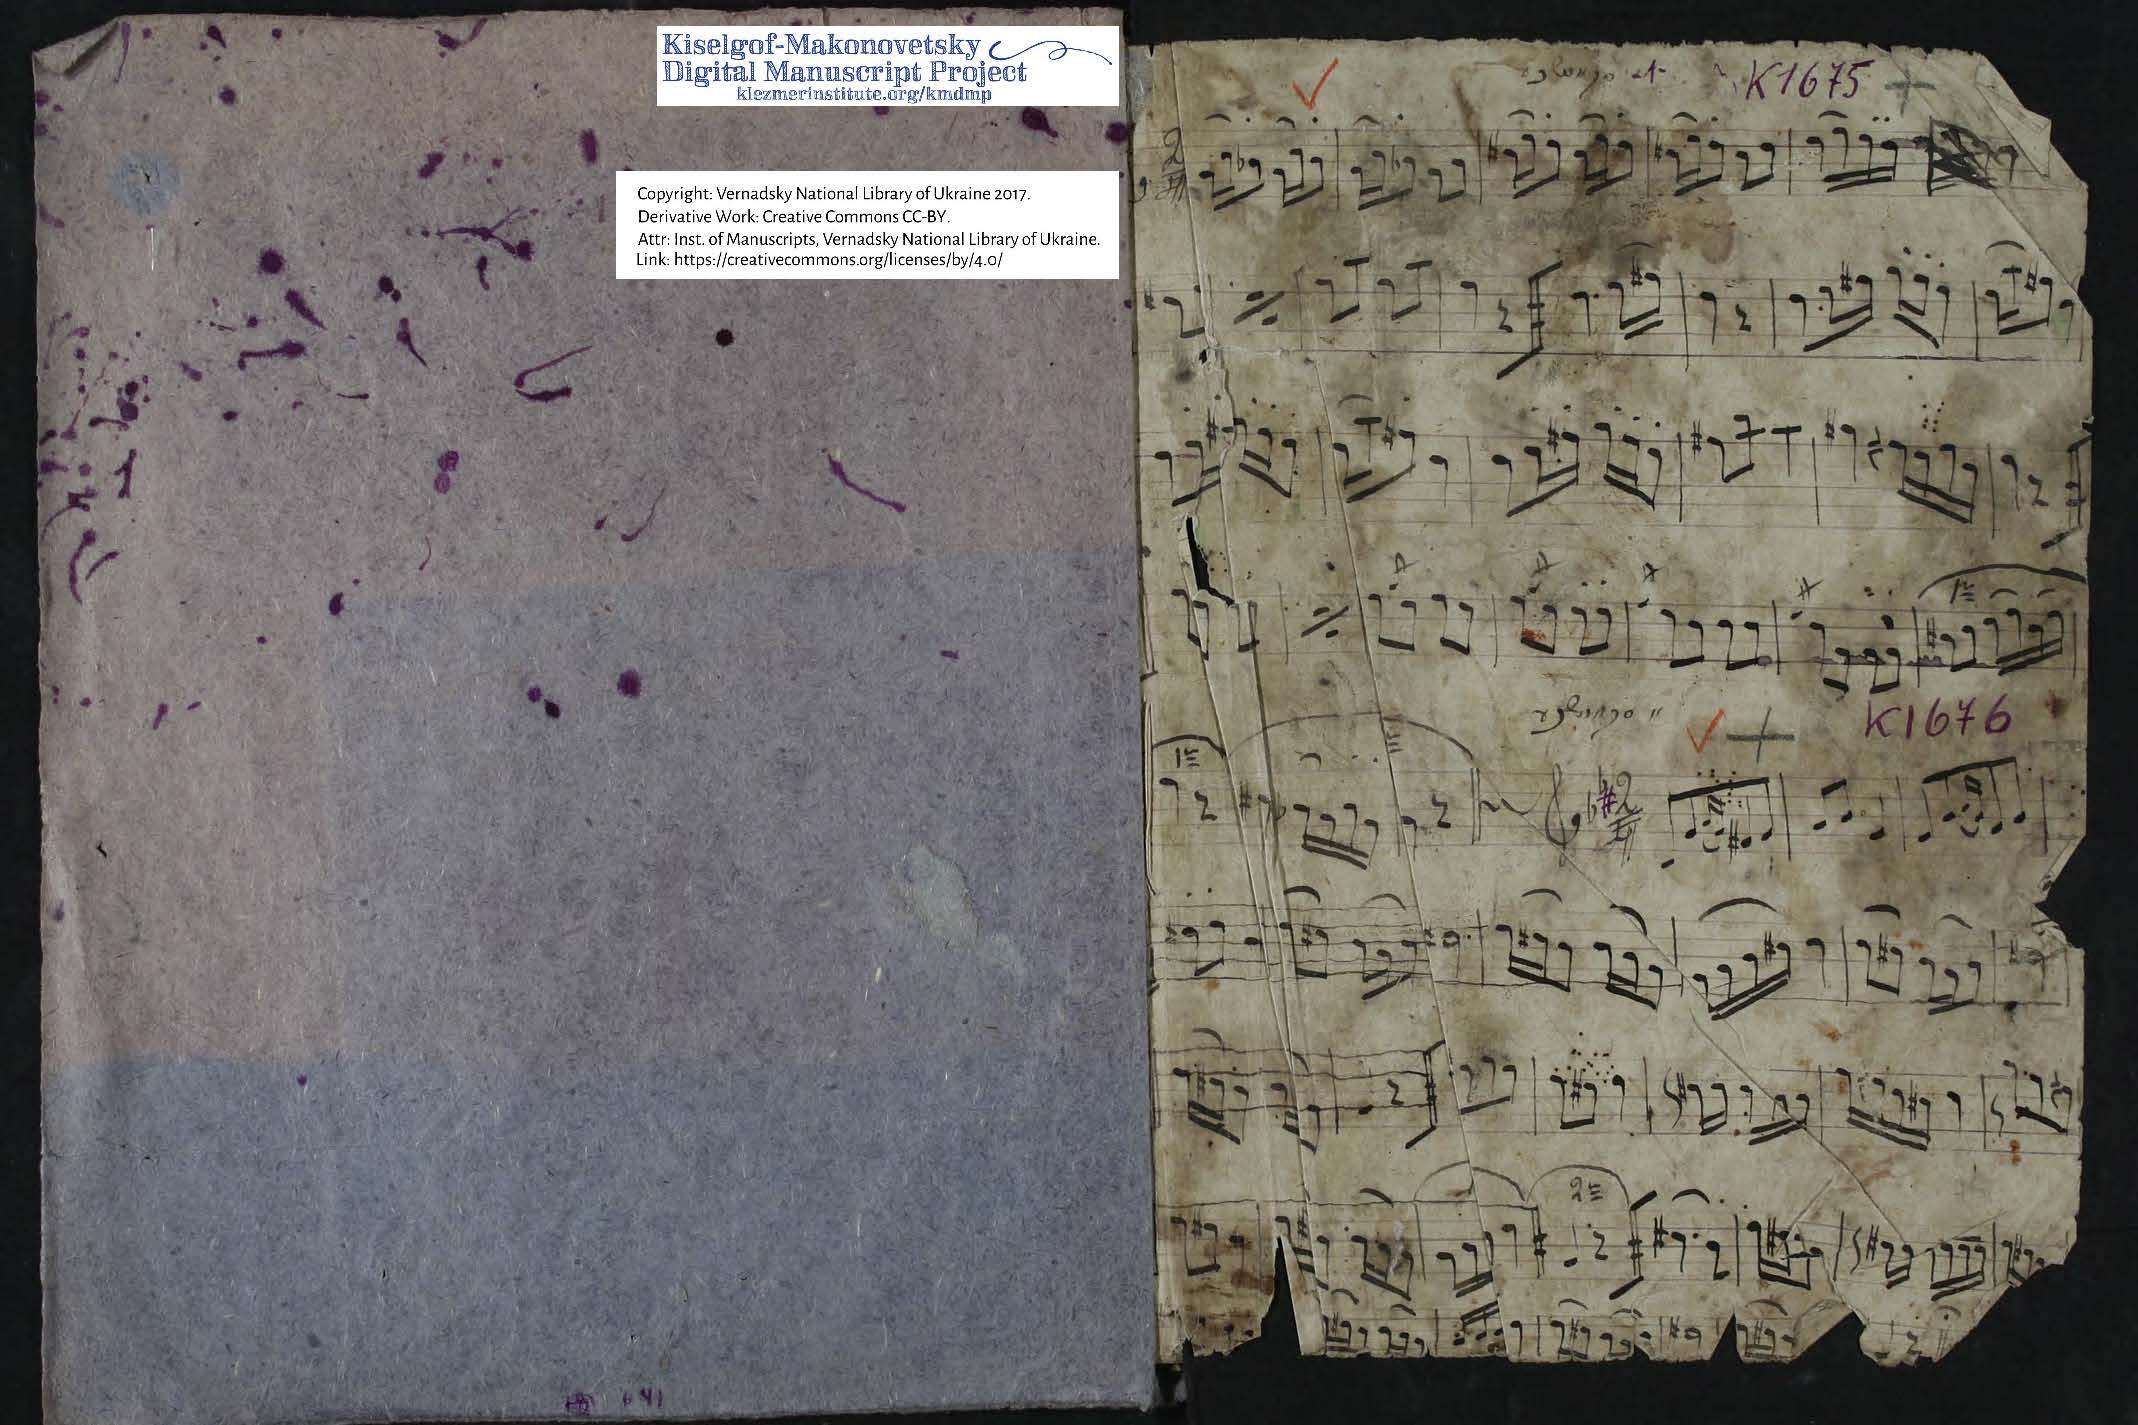 Kiselgof-Makonovetsky
Digital Manuscript Project
klezmerinstitute.org/kmdmp
Copyright: Vernadsky National Library of Ukraine 2017.
Derivative Work: Creative Commons CC-BY.
Attr: Inst. of Manuscripts, Vernadsky National Library of Ukraine.
Link: https://creativecommons.org/licenses/by/4.0/
K1675
K1676